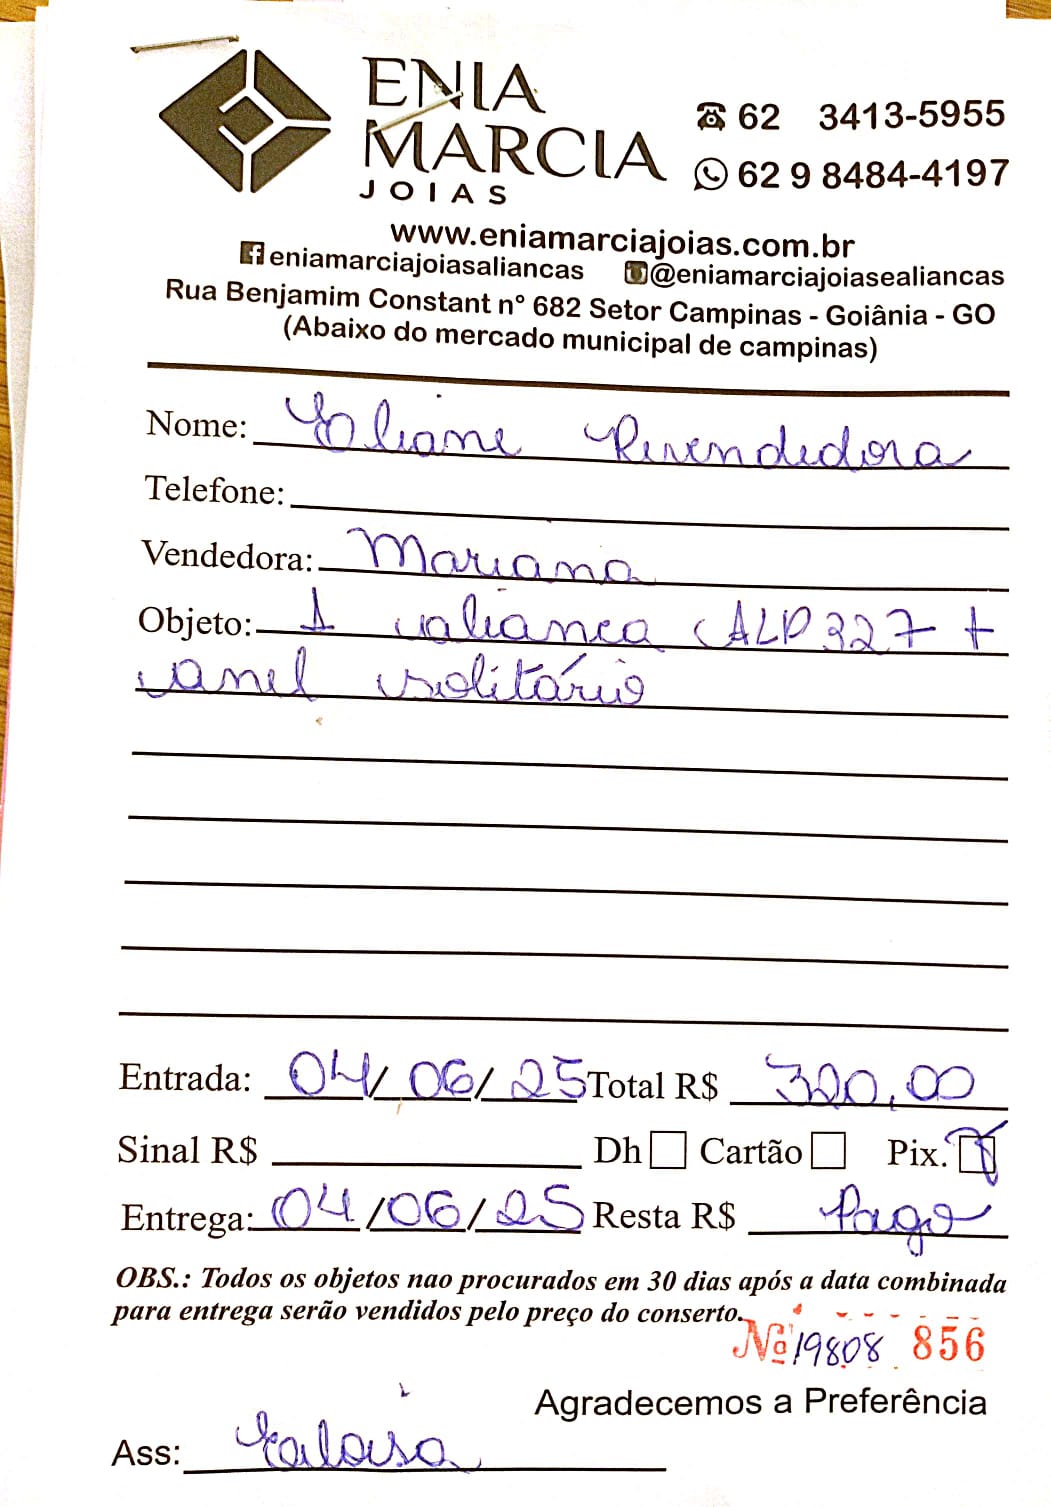 ENIA
MARCIA
JOIAS
62 3413-5955
62 9 8484-4197
www.eniamarciajoias.com.br
eniamarciajoiasaliancas @eniamarciajoiasealiancas
Rua Benjamim Constant nº 682 Setor Campinas - Goiânia - GO
(Abaixo do mercado municipal de campinas)
Nome: Eliane Revendedora
Telefone:
Vendedora: Mariana
Objeto: 1 aliança ALP327 +
anel solitário
Entrada: 04/06/25 Total R$ 320,00
Sinal R$ Dh Cartão Pix.
Entrega: 04/06/25 Resta R$ Pago
OBS.: Todos os objetos nao procurados em 30 dias após a data combinada
para entrega serão vendidos pelo preço do conserto.
Nº 19808 856
Agradecemos a Preferência
Ass: